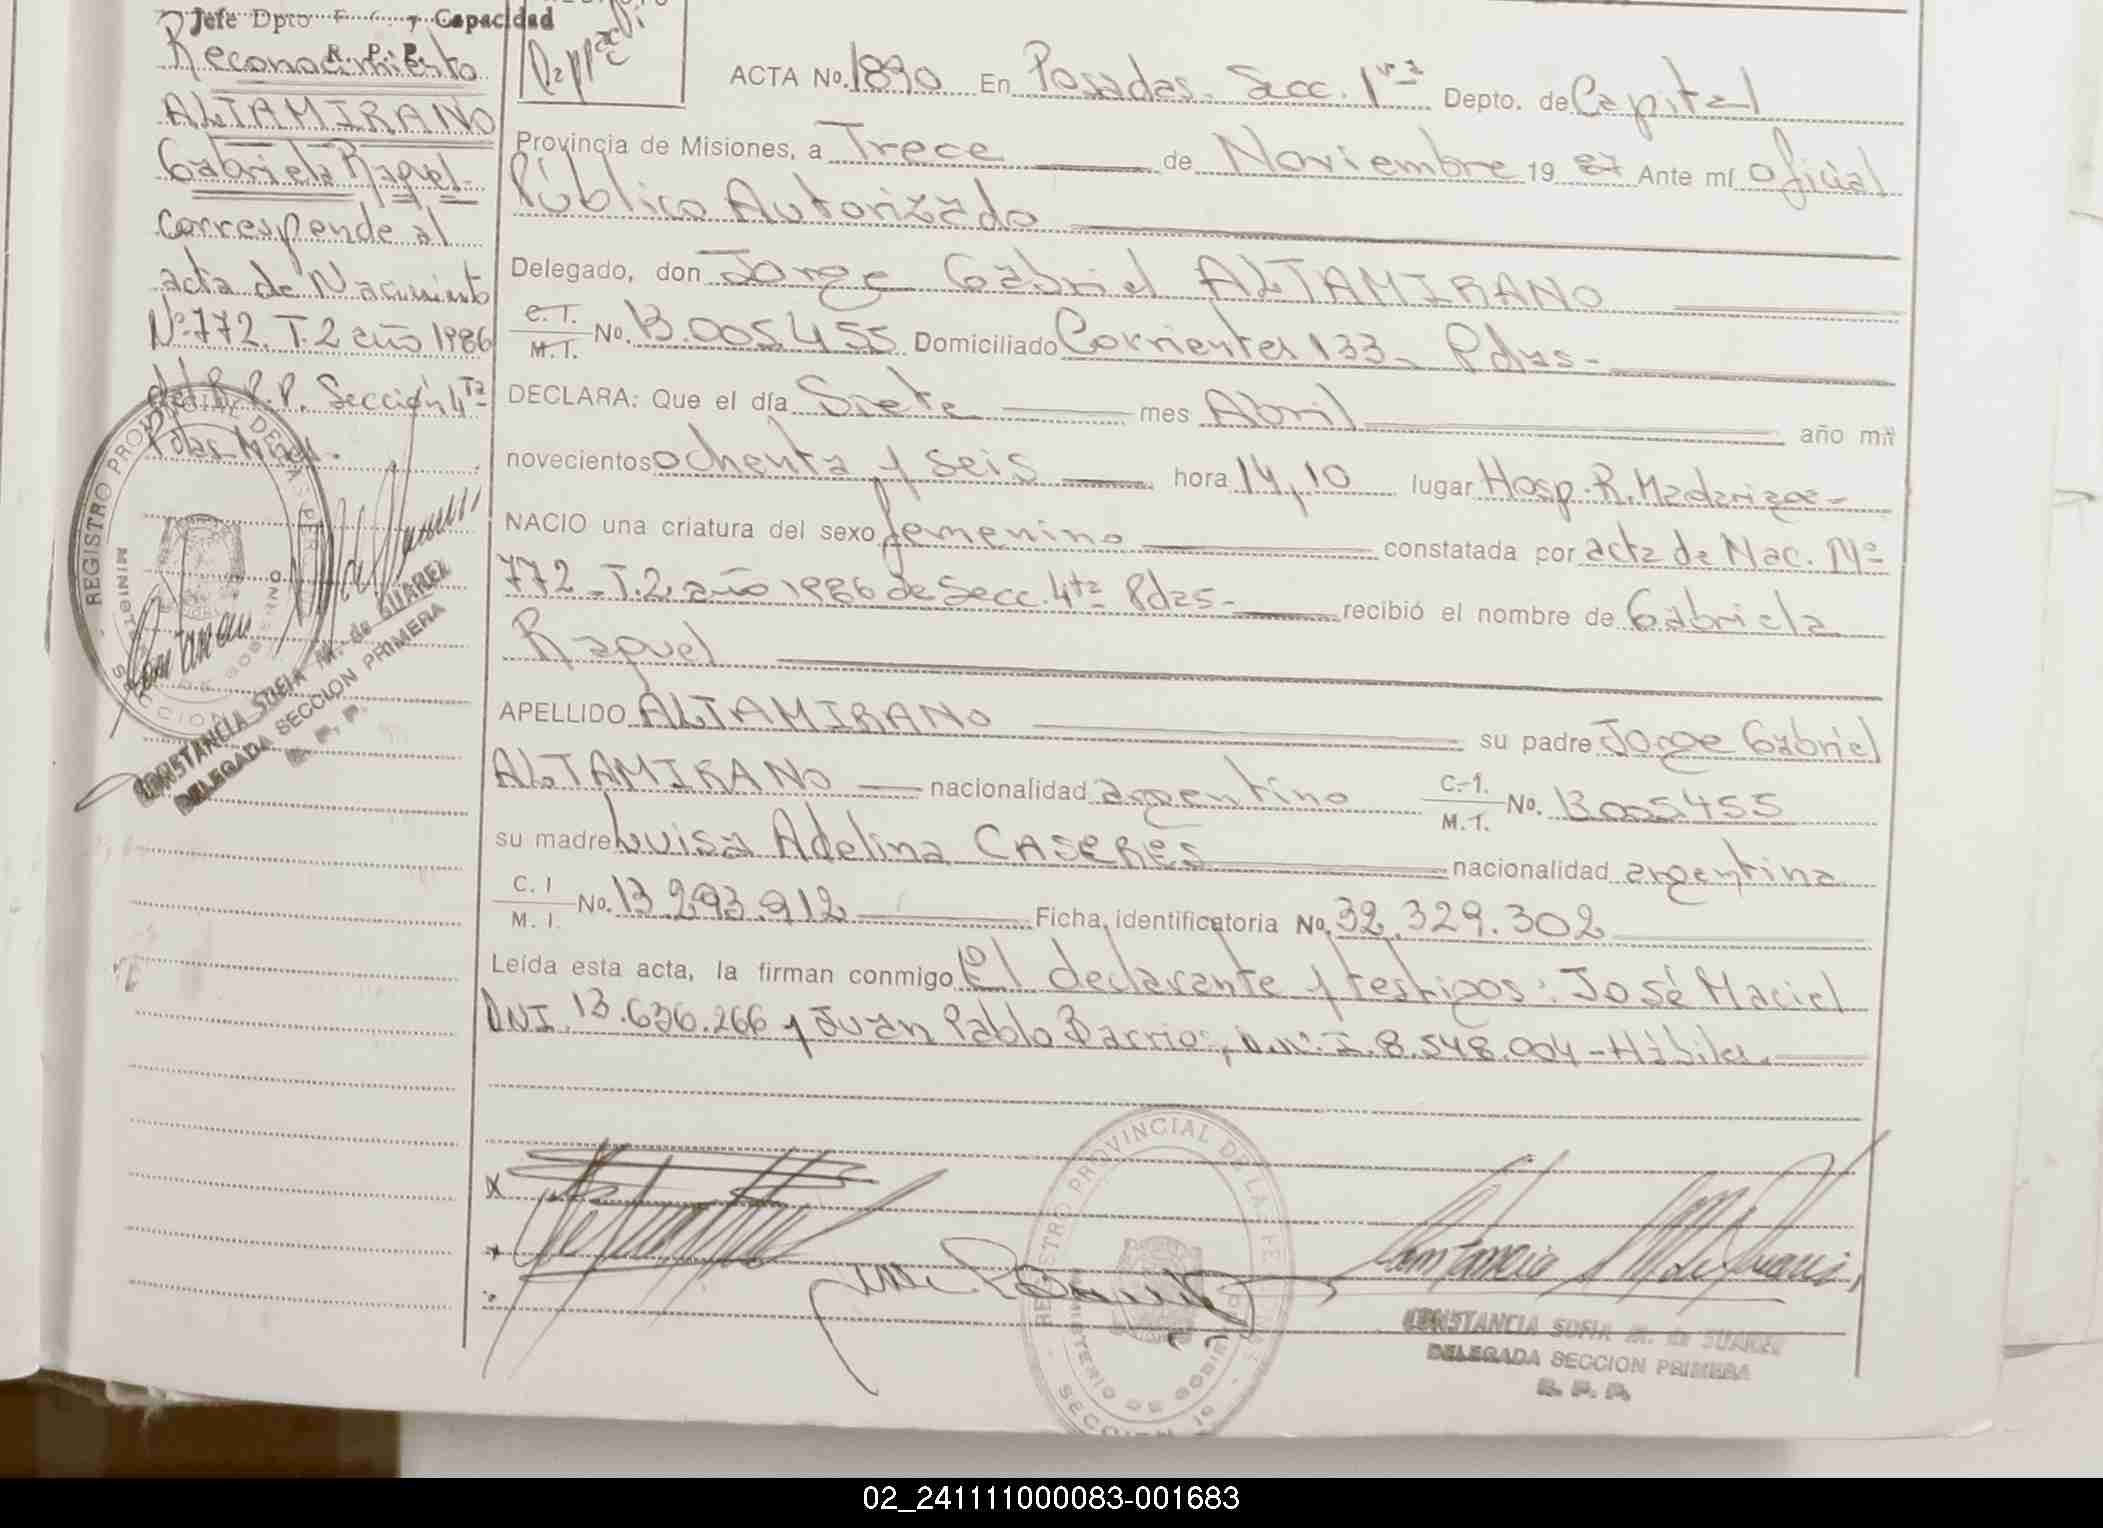 Jefe Dpto y Capacidad
R. P. P.
Reconocimiento
ALTAMIRANO
Gabriela Raquel-
corresponde al
acta de Nacimiento
Nº 772. T.2 año 1986
del R.P.P. Sección 4ta
Pdas Mnes.
REGISTRO PROVINCIAL DE LAS PER
MINISTE DE GOBIERNO
SECCION
CONSTANCIA SOFIA M. de SUAREZ
DELEGADA SECCION PRIMERA
R. P. P.
ACTA No. 1890 En Posadas. Secc. 1ra Depto. de Capital
Provincia de Misiones, a Trece de Noviembre 19 87 Ante mí Oficial
Público Autorizado
Delegado, don Jorge Gabriel ALTAMIRANO
C.I. M.I. No. 13.005.455 Domiciliado Corrientes 133- Pdas-
DECLARA: Que el día Siete mes Abril año mil
novecientos ochenta y seis hora 14,10 lugar Hosp. R. Madariaga-
NACIO una criatura del sexo femenino constatada por acta de Nac. Nº
772- T.2. año 1986 de Secc. 4ta Pdas- recibió el nombre de Gabriela
Raquel
APELLIDO ALTAMIRANO su padre Jorge Gabriel
ALTAMIRANO nacionalidad argentino C.I. M.I. No. 13.005.455
su madre Luisa Adelina CASERES nacionalidad argentina
C.I M.I. No. 13.293.912 Ficha identificatoria No. 32.329.302
Leída esta acta, la firman conmigo El declarante y testigos: José Maciel
DNI. 13.636.266 y Juan Pablo Barrios, D.N.I. 8.548.004-Hábiles.
REGISTRO PROVINCIAL DE LAS PERSONAS
MINISTERIO DE GOBIERNO
SECCION 1ª
CONSTANCIA SOFIA M. de SUAREZ
DELEGADA SECCION PRIMERA
R. P. P.
02_241111000083-001683